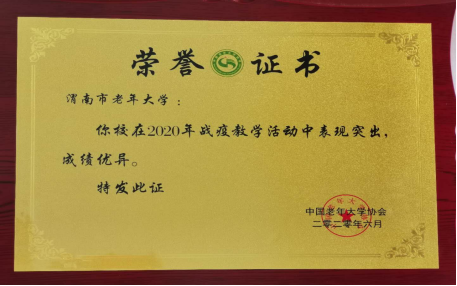 荣誉证书
渭南市老年大学：
你校在2020年战疫教学活动中表现突出，
成绩优异。
特发此证
中国老年大学协会
二零二零年六月